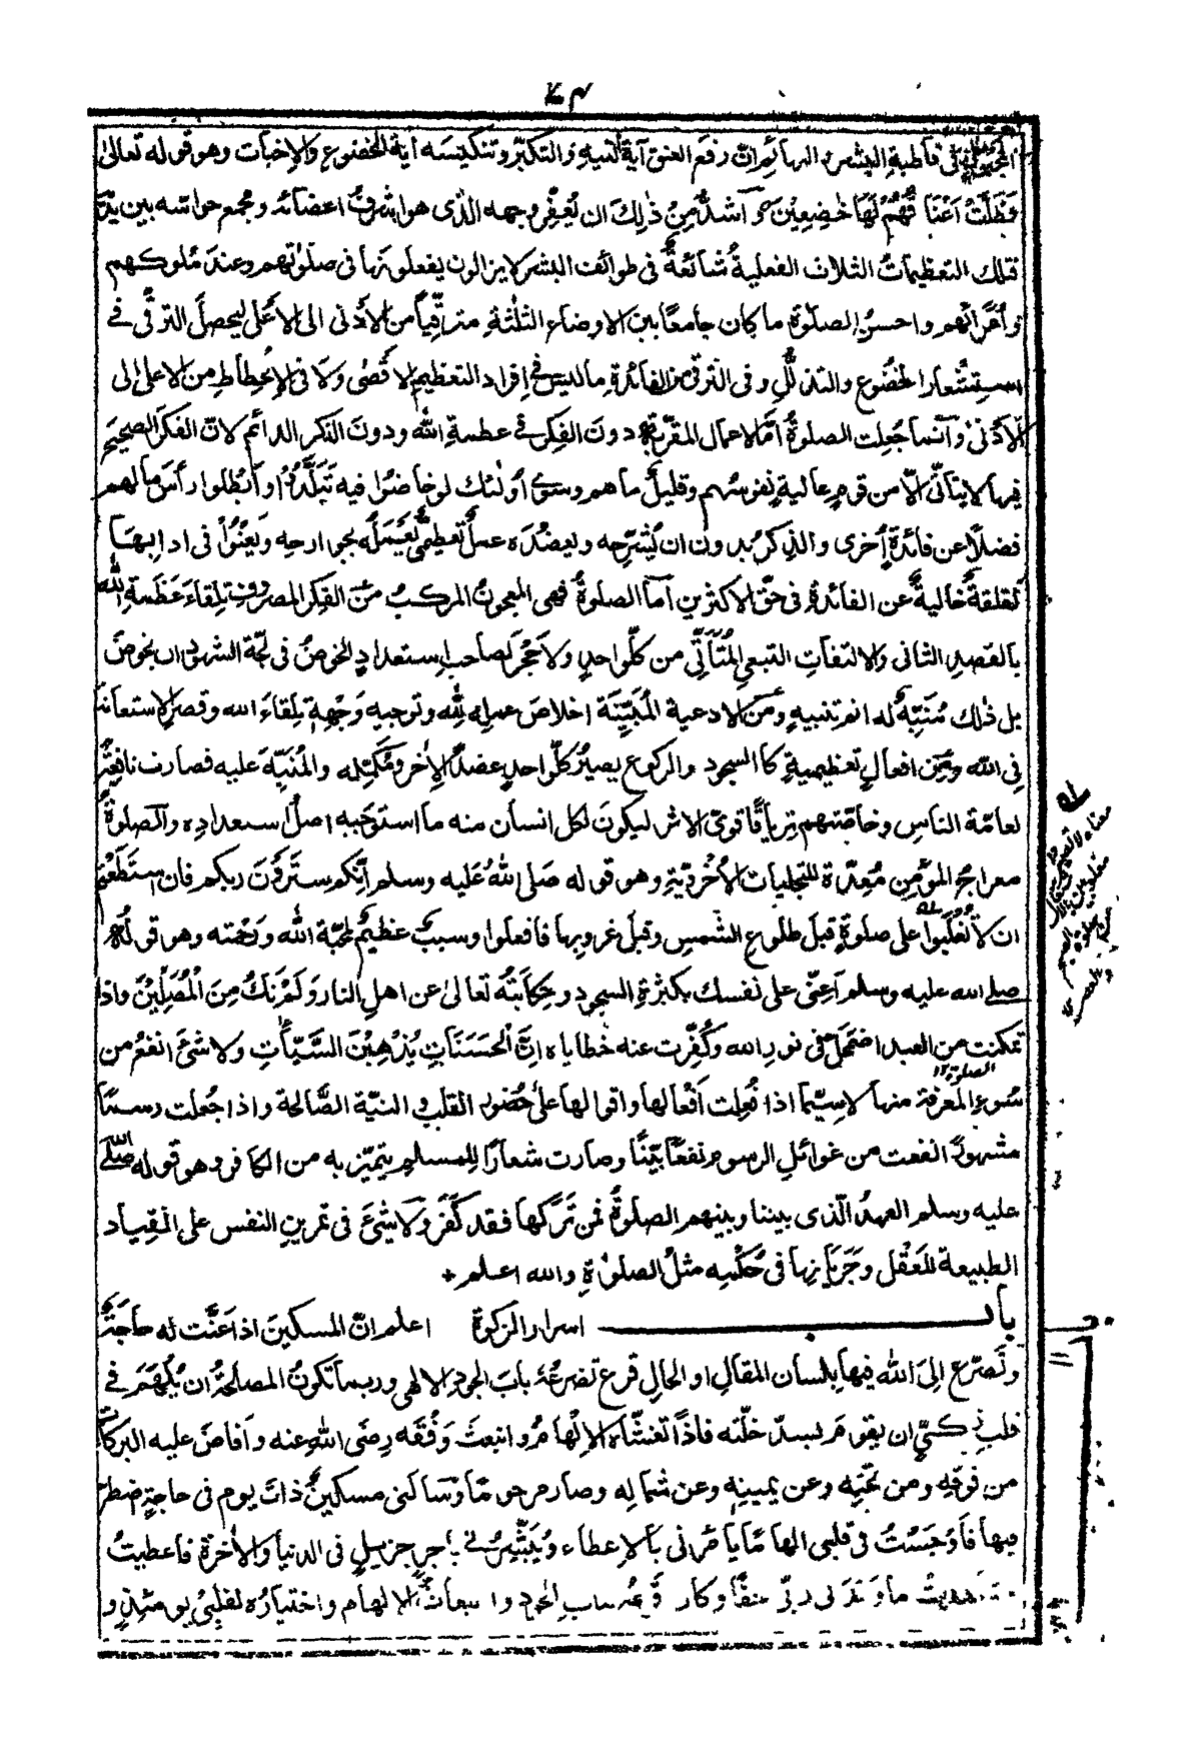 المجبول في قاطبة البشر والبهائم ان رفع العنق آية التيه والتكبر وتنكيسه آية الخضوع والاخبات وهو قوله تعالى
فَظَلَّتْ اَعْنَاقُهُمْ لَهَا خٰضِعِيْنَ و اشدُّ مِنْ ذٰلِكَ ان يُعفِّر وجهه الذى هو اشرفُ اعضائه ومجمع حواسه بين يديه
فتلك التعظيماتُ الثلاث الفعليةُ شائعةٌ فى طوائف البشر لايزالون يفعلونها فى صلواتهم وعند ملوكهم
وأمرائهم واحسنُ الصلوٰة ما كان جامعًا بين الاوضاع الثلٰثة مترقِّياً من الأدنى الى الاعلى ليحصلَ الترقّى فى
استشعار الخضوع والتذلُّلِ وفى الترقى من الفائدة ما ليس فى إفراد التعظيم الاقصٰى ولا فى الانحطاط من الاعلى الى
الأدنى وانما جُعلت الصلوةُ أمَّ الاعمال المقرّبة دونَ الفكر فى عظمةِ الله ودونَ الذكر الدائم لانّ الفكر الصحيح
فيها لايتأتّى الّا من قومٍ عاليةٍ نفوسُهم وقليلٌ ما هم وسوى أولٰئك لو خاضوا فيه تَبَلَّدُوا وأبطلوا رأس مالهم
فضلًا عن فائدةٍ أُخرى والذكرُ بدون ان يُشرّحه ويعضُدَه عملٌ تعظيميٌّ يَعْمَلُه بجوارحِه ويَعْنُوْا فى ادابها
لقلقةٌ خاليةٌ عن الفائدة فى حقّ الاكثرين أما الصلوةُ فهى المعجونُ المركبُ من الفكر المصروف تِلقاءَ عَظَمةِ الله
بالقصد الثانى والالتفاتِ التبعيِ المُتَأَتِّي من كلِّ واحدٍ ولا حَجْرَ لصاحب استعداد الخوضُ فى لُجّة الشهود ان يخوضَ
بل ذٰلك مُنَبِّهٌ له اتمّ تنبيهٍ ومن الادعية المُبَيِّنَة اخلاصَ عملِه لِلّٰه وتوجيهِ وَجْهِهِ تِلقاءَ الله وقصرِ الاستعانة
فى الله ومن افعالٍ تعظيميةٍ كالسجود والركوع يصيرُ كلُّ واحدٍ عضدَ الاٰخر ومكمِّلَه والمُنَبِّهَ عليه فصارت نافعةً
لعامّة الناسِ وخاصّتهم تِرياقًا قوىَّ الاثر ليكونَ لكل انسان منه ما استوجبه اصلُ استعداده والصلوةُ
معراجُ المؤمنِ مُعِدّةٌ للتجلياتِ الأُخْرويّةِ وهو قوله صَلى اللهُ عَليه وسلم انّكم ستَرَوْنَ ربكم فان استَطَعْتم
ان لا تُغلَبوا على صلوةٍ قبلَ طلوع الشّمس وقبلَ غروبها فافعلوا وسببٌ عظيمٌ لمحبّة الله ورَحْمته وهو قوله
صلى الله عليه وسلم أعِنّى على نفسك بكثرةِ السجود وحِكايته تعالى عن اهلِ النار وَلَمْ نَكُ مِنَ الْمُصَلِّيْنَ واذا
تمكنت من العبد اضمحلّ فى نورِ الله وكُفِّرت عنه خطاياه اِنَّ الْحَسَنَاتِ يُذْهِبْنَ السَّيِّاٰتِ ولا شئ انفعُ من
الصلوة ١٢
سوء المعرفة منها لاسيّما اذا فُعِلت أفْعالها واقوالها على حُضور القلب والنيّة الصَّالحة واذا جُعلت رسمًا
مشهورًا نفعت من غوائلِ الرسوم نفعًا بيّنًا وصارت شعارًا للمسلمِ يتميّز به من الكافر وهو قوله صلى الله
عليه وسلم العهدُ الّذى بيننا وبينهم الصلوةُ فمن تَرَكَها فقد كَفَرَ ولا شئَ فى تمرينِ النفس على انقياد
الطبيعة للعقل وجَرَيانِها فى حُكْمِه مثلُ الصلوٰةِ والله اعلم +
باب اسرار الزكوة اعلم انّ المسكينَ اذا عَنَّت له حاجَةٌ
وتَضَرّع الىَ الله فيها بلسان المقال او الحالِ قرع تضرعُهُ بابَ الجود الالهى وربما تكونُ المصلحةُ ان يُلهَم فى
قلبِ زكىٍّ ان يقومَ بسدّ خلّته فاذا تغشّاه الالهامُ وانبعث وَفْقَه رضىَ اللهُ عنه وأفاضَ عليه البركاتِ
من فوقِه ومن تحتِه وعن يمينه وعن شماله وصار مرحومًا وسَألنى مسكينٌ ذاتَ يوم فى حاجةٍ اضطر
فيها فَأوجَسْتُ فى قلبى الهامًا يأمُرنى بالاعطاء ويُبشِّرُنى باجرٍ جزيلٍ فى الدنيا والاٰخرة فاعطيتُ
وشاهدتُ ما وَعَدنى ربّى حقًّا وكان قَرْعُه لباب الجود وانبعاثُ الالهام واختيارُه لقلبى يومئذٍ و